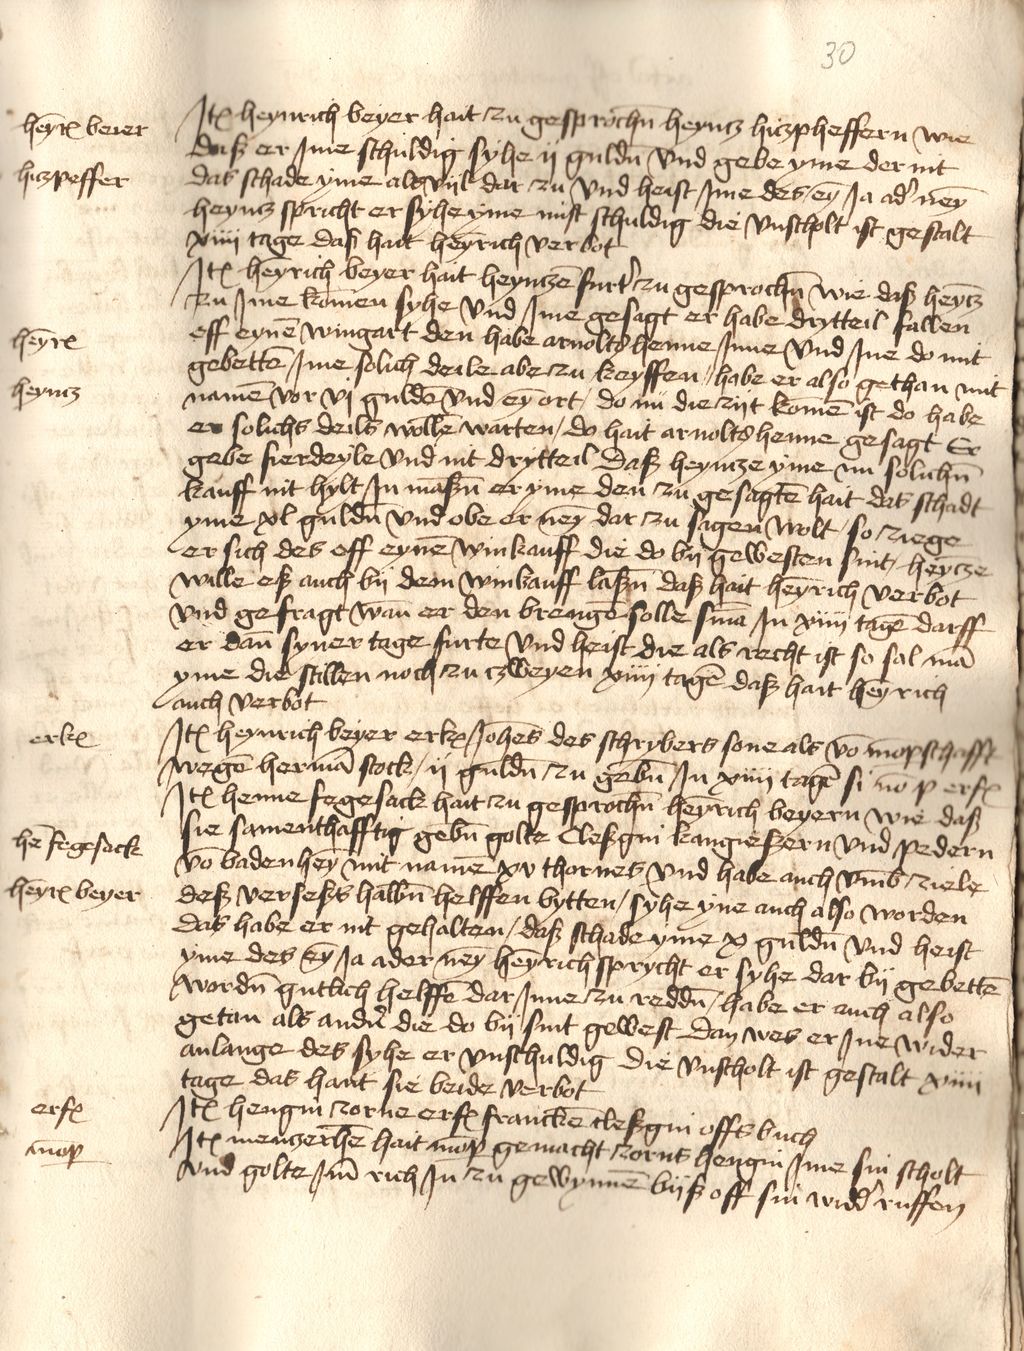 30
heyrͫ beier
hiczpeffer
heyrͫ
heyncz
erkͫ
heñ fegesack
heyrͫ beyer
erfͫ
mop̄
Jtͫ heynrich beyer hait zu gesprochn̄ heyncz hiczpheffern wie
daß er Jme schuldig syhe ij guldn̄ vnd gebe yme der nit
das schade yme als vijl dar zu vnd heist Jme des eȳ Ja ad' neȳ
heyncz spricht er syhe yme nust schuldig die vnscholt ist gestalt
xiiii tage das hait heȳrich verbot
Jtͫ heȳrich beyer hait heynczē furt' zu gesprochn̄ wie daß heȳcz
zu Jme komen syhe vnd Jme gesagt er habe drytteil fallen
off eynē wingart den habe arnolts henne Jnne vnd Jne do mit
gebettē Jme solich deile abe zu keyffen / habe er also gethan mit
namē vor vj guldē vnd eȳ ort / do nū die zijt komē ist do habe
er solichs deils wollē warten / do hait arnolts henne gesagt Er
gebe fierdeyle vnd nit drytteil Daß heyncze yme nu solichn̄
kauff nit hylt Jn maßn̄ er yme den zu gesagtē hait das schadt
yme xl guldn̄ vnd obe er neȳ dar zu sagen wolt / so ziege
er sich des off eynē winkauff die do bij gewesten sint / heycze
wille eß auch bij dem winkauff laßn̄ daß hait heȳrich verbot
vnd gefragt wan̄ er den brenge solle sma Jn xiiii tagē darff
er dan̄ syner tage furte vnd heist die als recht ist so sal mā
yme die stillen noch zu czweyen xiiii tagē daß hait heȳrich
auch verbot
Jtͫ heynrich beyer erkͫ Johēs des schrybers sone als vō mopschafft
wegē hermā stock / ij guldn̄ zu gebn̄ Jn xiiii tagē si nō p erfͫ
Jtͫ henne fegesack hait zu gesprochn̄ heȳrich beyern wie daß
sie samenthafftig gebn̄ golte Cleßgin kangießern vnd pedern
vō badenheȳ mit namē xv thornes vnd habe auch vmb ziele
deß verseßs halbn̄ helffen bytten / syhe yne auch also worden
das habe er nit gehalten / daß schade yme x guldn̄ vnd heist
yme des eȳ Ja ader neȳ heȳrich sprycht er syhe dar bij gebettē
wordn̄ gutlich helffē dar Jnne zu reddn̄ / habe er auch also
getan als andr̄ die do bij sint gewest Dan wes er Jne wider
anlange des syhe er vnschuldig die vnscholt ist gestalt xiiii
tage das haint sie beide verbot
Jtͫ hengin zorne erfͫ franckē cleßgin offs buch
Jtͫ menczerhēn hait mop̄ gemacht zorns hengin Jme sin scholt
vnd golte Jm̄ rich Jn zu gewynnē bijß off sin widd' ruffen